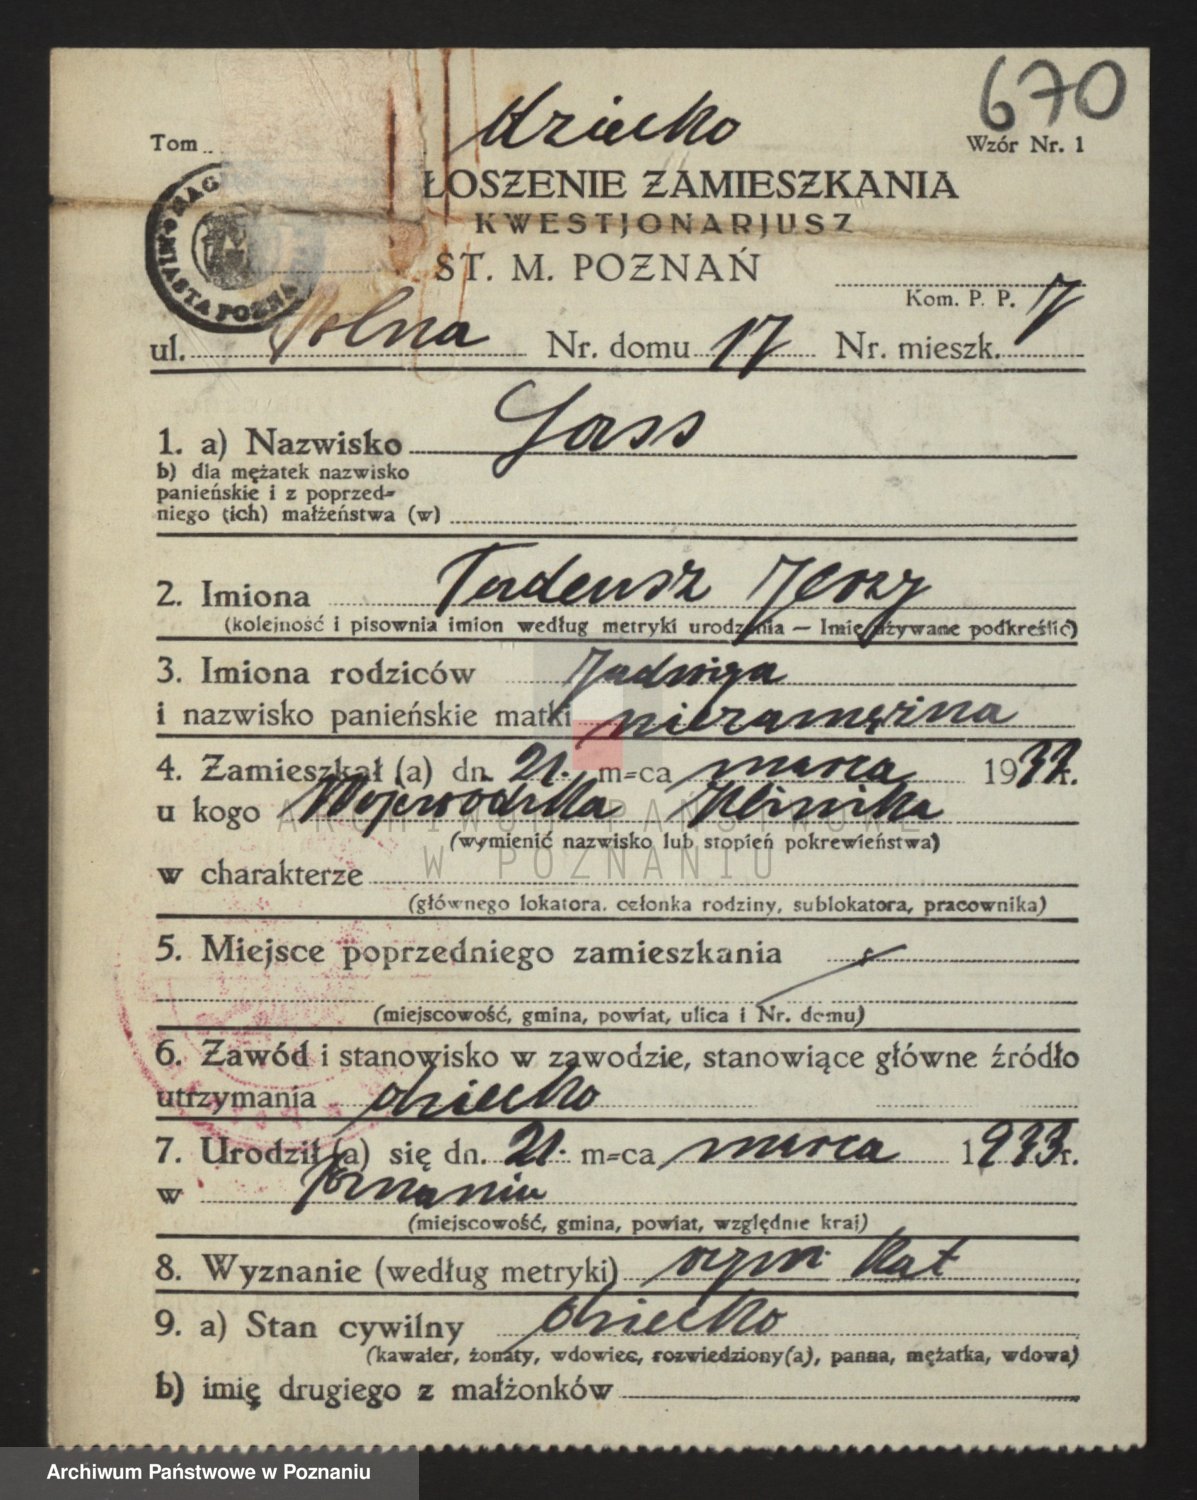 670
dziecko
Tom
Wzór Nr. 1
ŁOSZENIE ZAMIESZKANIA
KWESTJONARJUSZ
ST. M. POZNAŃ
MIASTA POZNA
Kom. P. P. 7
ul. Polna Nr. domu 17 Nr. mieszk.
1. a) Nazwisko Gass
b) dla mężatek nazwisko
panieńskie i z poprzed-
niego (ich) małżeństwa (w)
2. Imiona Tadeusz Jerzy
(kolejność i pisownia imion według metryki urodzenia — Imię używane podkreślić)
3. Imiona rodziców Jadwiga
i nazwisko panieńskie matki niezamężna
4. Zamieszkał (a) dn. 21. m-ca marca 1933 r.
u kogo Wojewódzka Klinika
(wymienić nazwisko lub stopień pokrewieństwa)
ARCHIWUM PAŃSTWOWE
W POZNANIU
w charakterze
(głównego lokatora. członka rodziny, sublokatora, pracownika)
5. Miejsce poprzedniego zamieszkania
(miejscowość, gmina, powiat, ulica i Nr. domu)
6. Zawód i stanowisko w zawodzie, stanowiące główne źródło
utrzymania dziecko
7. Urodził (a) się dn. 21. m-ca marca 1933 r.
w Poznaniu
(miejscowość, gmina, powiat, względnie kraj)
8. Wyznanie (według metryki) rzym. kat
9. a) Stan cywilny dziecko
(kawaler, żonaty, wdowiec, rozwiedziony(a), panna, mężatka, wdowa)
b) imię drugiego z małżonków
Archiwum Państwowe w Poznaniu